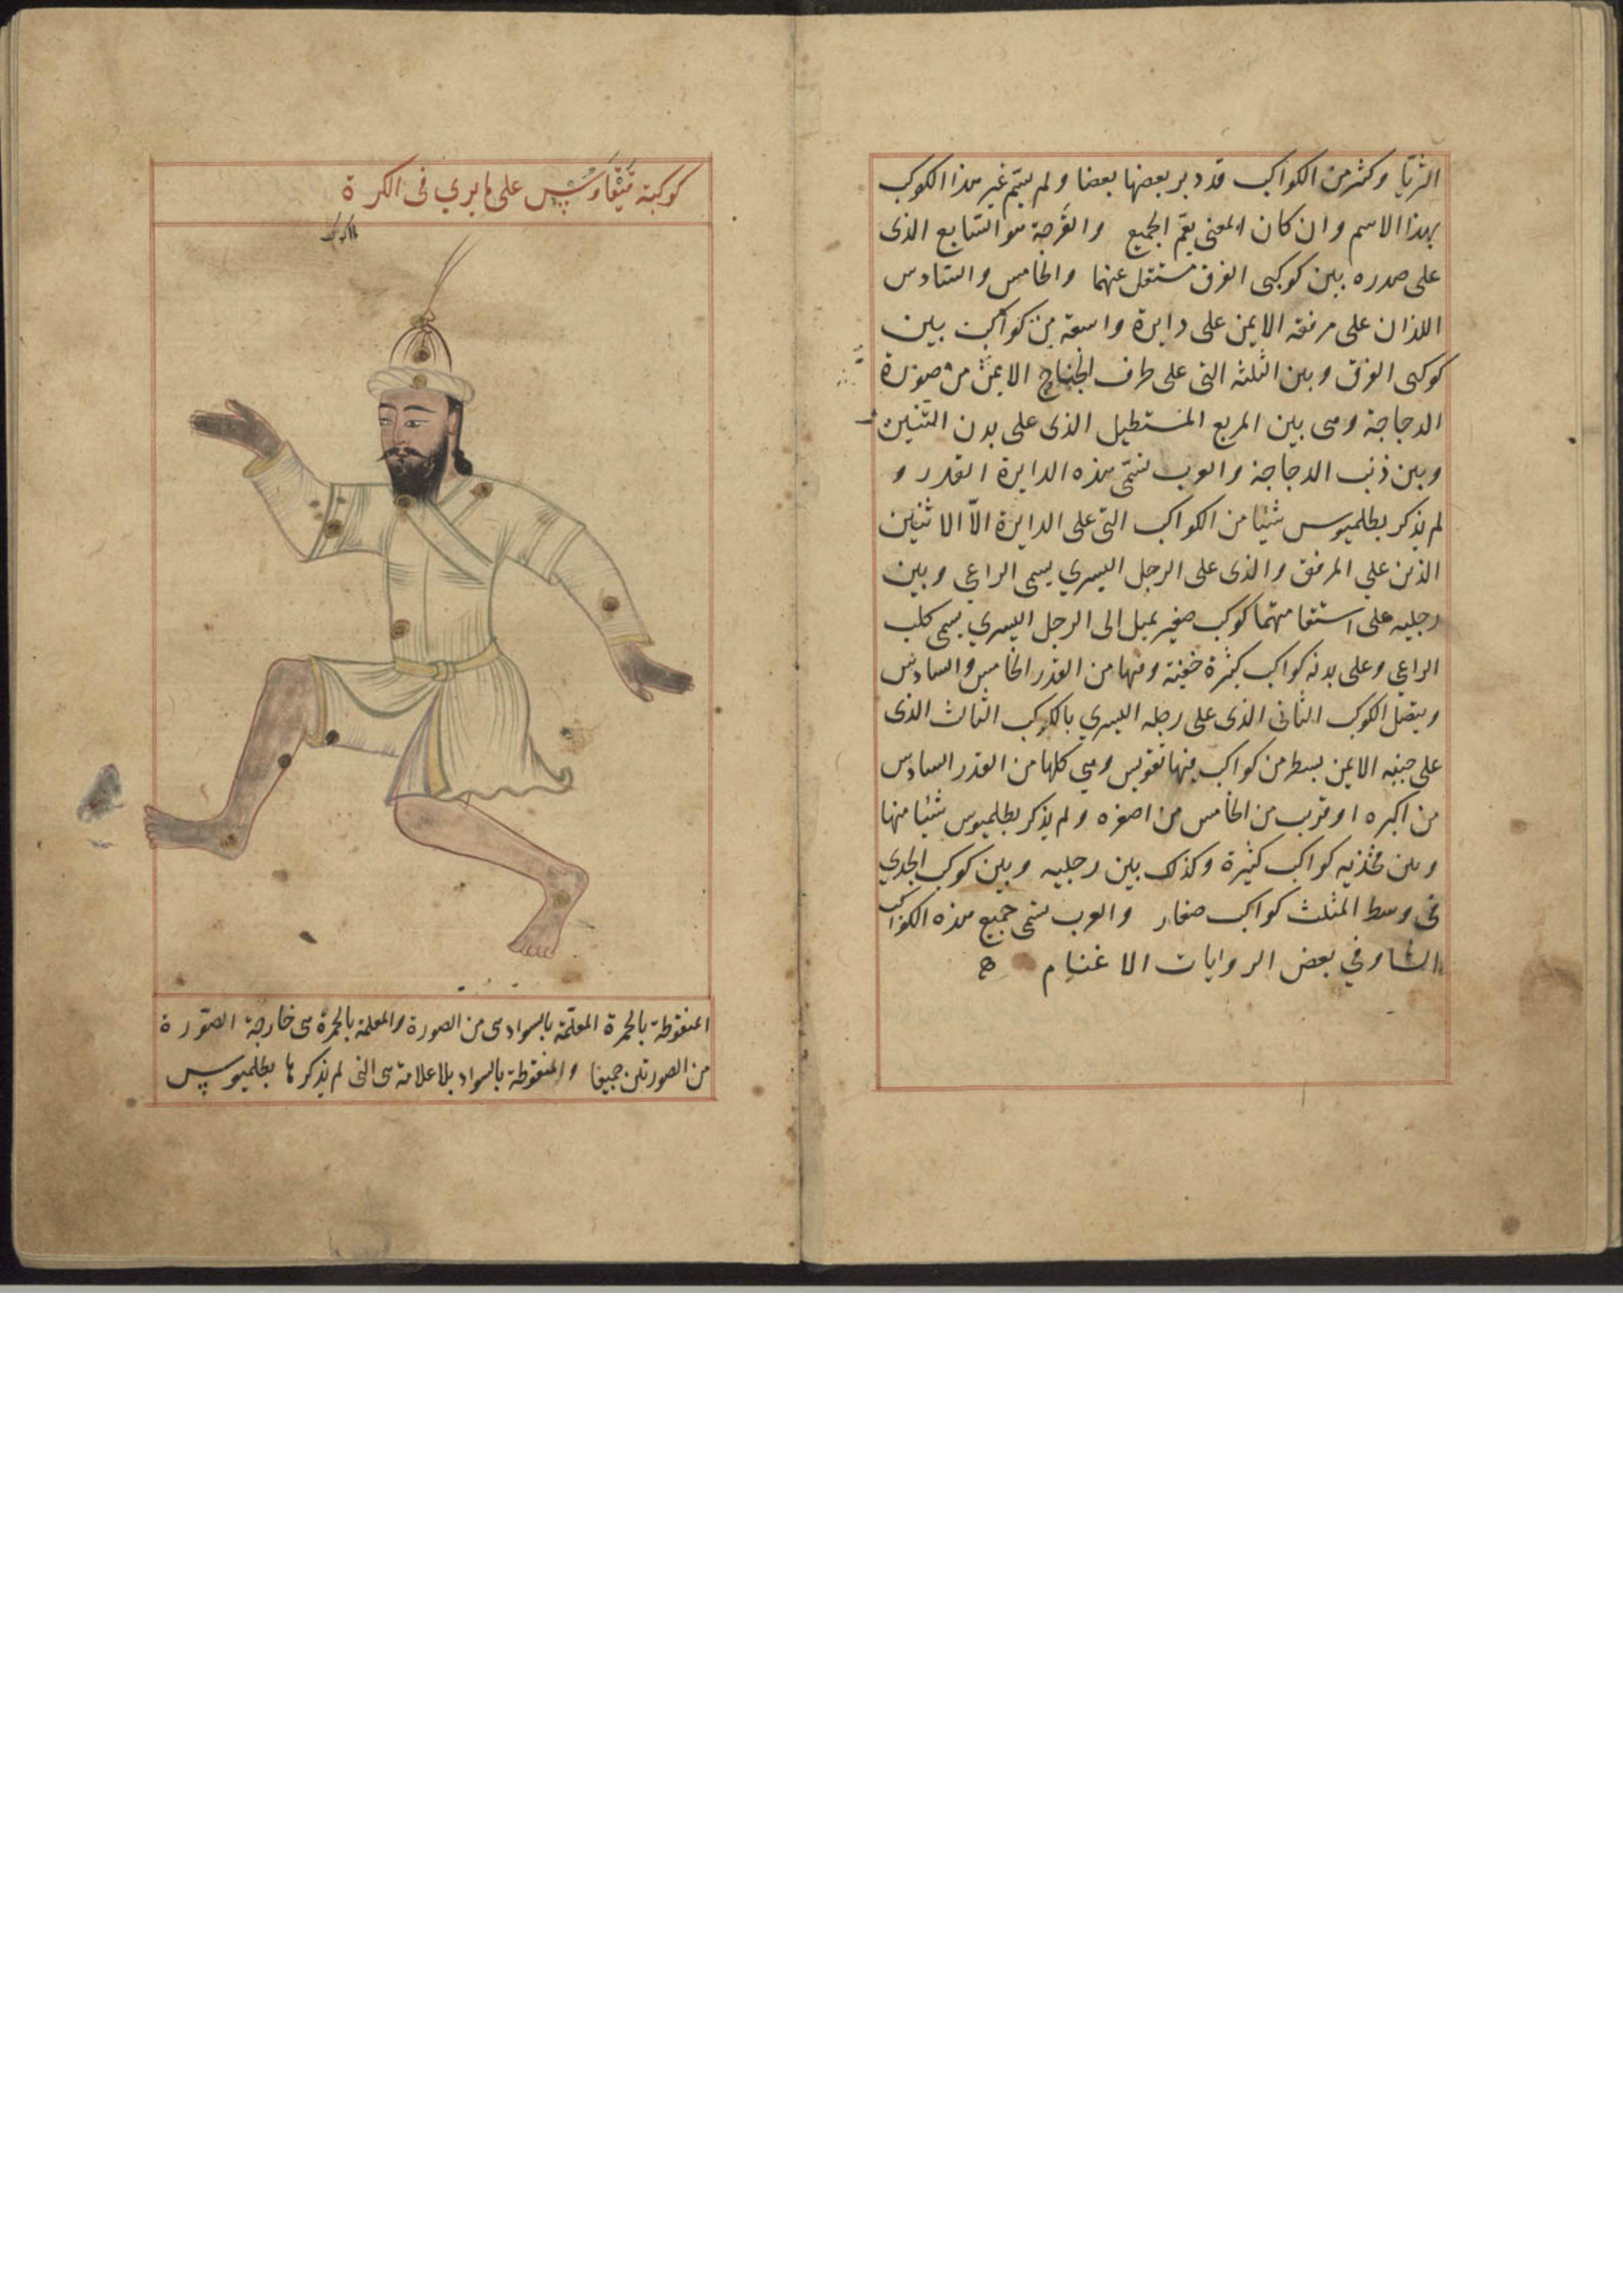 الثريا وكثير من الكواكب قد دبر بعضها بعضا ولم يسم غير هذا الكوكب
بهذا الاسم وان كان المعنى يعم الجميع والقرحة هو السابع الذى
على صدره بين كوكبى الفرق مستقل عنهما والخامس والسادس
اللذان على مرفقه الايمن على دايرة واسعة من كواكب بين
كوكبى الفرق وبين الثلثه التى على طرف الجناح الايمن من صورة
الدجاجة وهى بين المربع المستطيل الذى على بدن التنين
وبين ذنب الدجاجة والعرب تسمى هذه الدايرة القدر و
لم يذكر بطلميوس شيئا من الكواكب التى على الدايرة الا الاثنين
الذين على المرفق والذى على الرجل اليسري يسمى الراعي وبين
رجليه على استقامتهما كوكب صغير يميل الى الرجل اليسري يسمى كلب
الراعي وعلى بدنه كواكب كثيرة خفية ومنها من القدر الخامس والسادس
ويتصل الكوكب الثانى الذى على رجله اليسري بالكوكب الثالث الذى
على جنبه الايمن بسطر من كواكب فيها تقويس وهي كلها من القدر السادس
من اكبره او قرب من الخامس من اصغره ولم يذكر بطلميوس شيئا منها
وبين فخذيه كواكب كثيرة وكذلك بين رجليه وبين كوكب الجدي
فى وسط المثلث كواكب صغار والعرب تسمى جميع هذه الكواكب
الشا وفي بعض الروايات الاغنام
كوكبة قيقاوس على ما يري فى الكرة
المنقوطة بالحمرة المعلمة بالسواد هى من الصورة والمعلمة بالحمرة هى خارجة الصورة
من الصورتين جميعا والمنقوطة بالسواد بلا علامة هى التى لم يذكرها بطلميوس